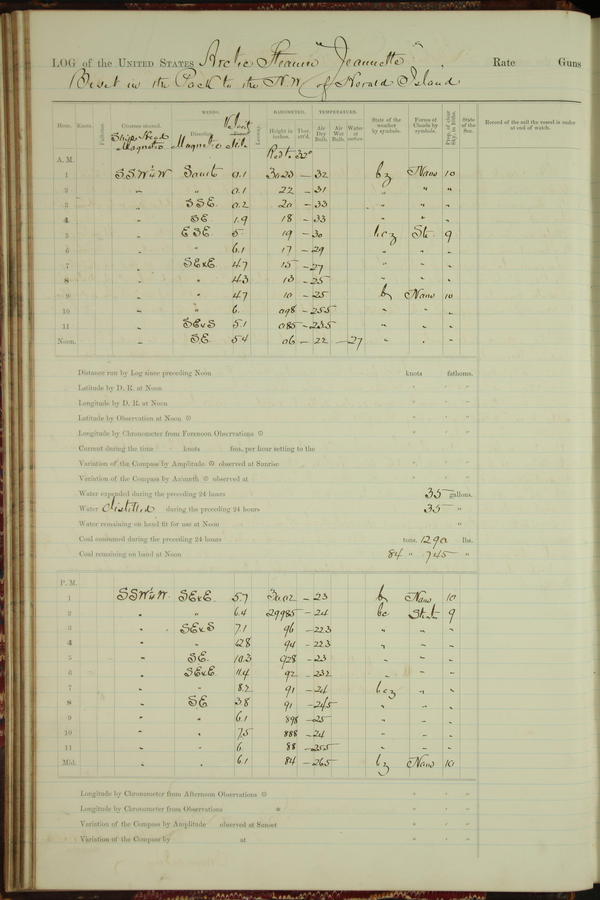 LOG of the UNITED STATES Arctic Steamer "Jeannette" Rate Guns
Beset in the Pack to the N.W. of Herald Island
WINDS. BAROMETER. TEMPERATURE.
Hour. Knots. Fathoms. Courses steered. Direction. Velocity Leeway. Height in inches. Ther. att'd. Air Dry Bulb. Air Wet Bulb. Water at surface. State of the weather by symbols. Forms of Clouds by symbols. Prop. of clear Sky, in 10ths. State of the Sea. Record of the sail the vessel is under at end of watch.
Ships Head Magnetic Magnetic
A. M. Red to 32°
1 SSW½W South 0.1 30.23 -32 bz None 10
2 " " 0.1 22 -31 " " "
3 " SSE 0.2 20 -33 " " "
4 " SE 1.9 18 -33 " " "
5 " ESE 5 19 -30 bcz Str 9
6 " " 6.1 17 -29 " " "
7 " SExE 4.7 15 -27 " " "
8 " " 4.3 13 -25 " " "
9 " " 4.7 10 -25 b None 10
10 " " 6. 098 -25.5 " " "
11 " SExS 5.1 085 -23.5 " " "
Noon. " SE 5.4 06 -22 -27 " " "
Distance run by Log since preceding Noon knots fathoms.
Latitude by D. R. at Noon ° ′ ″
Longitude by D. R. at Noon ° ′ ″
Latitude by Observation at Noon ☉ ° ′ ″
Longitude by Chronometer from Forenoon Observations ☉ ° ′ ″
Current during the time knots fms. per hour setting to the
Variation of the Compass by Amplitude ☉ observed at Sunrise ° ′ ″
Variation of the Compass by Azimuth ☉ observed at ° ′ ″
Water expended during the preceding 24 hours 35 gallons.
Water distilled during the preceding 24 hours 35 "
Water remaining on hand fit for use at Noon "
Coal consumed during the preceding 24 hours tons. 1290 lbs.
Coal remaining on hand at Noon 84 " 745 "
P. M.
1 SSW½W SExE 5.7 30.02 -23 b None 10
2 " " 6.4 29985 -24 bc Strat 9
3 " SExS 7.1 96 -22.3 " " "
4 " " 12.8 94 -22.3 " " "
5 " SE 10.3 928 -23 " " "
6 " SExE 11.4 92 -23.2 " " "
7 " " 8.2 91 -24 bcz " "
8 " SE 3.8 91 -24.5 " " "
9 " " 6.1 898 -25 " " "
10 " " 7.5 888 -24 " " "
11 " " 6 88 -25.5 " " "
Mid. " " 6.1 84 -26.5 bz None 10
Longitude by Chronometer from Afternoon Observations ☉ ° ′ ″
Longitude by Chronometer from Observations * ° ′ ″
Variation of the Compass by Amplitude observed at Sunset ° ′ ″
Variation of the Compass by at ° ′ ″